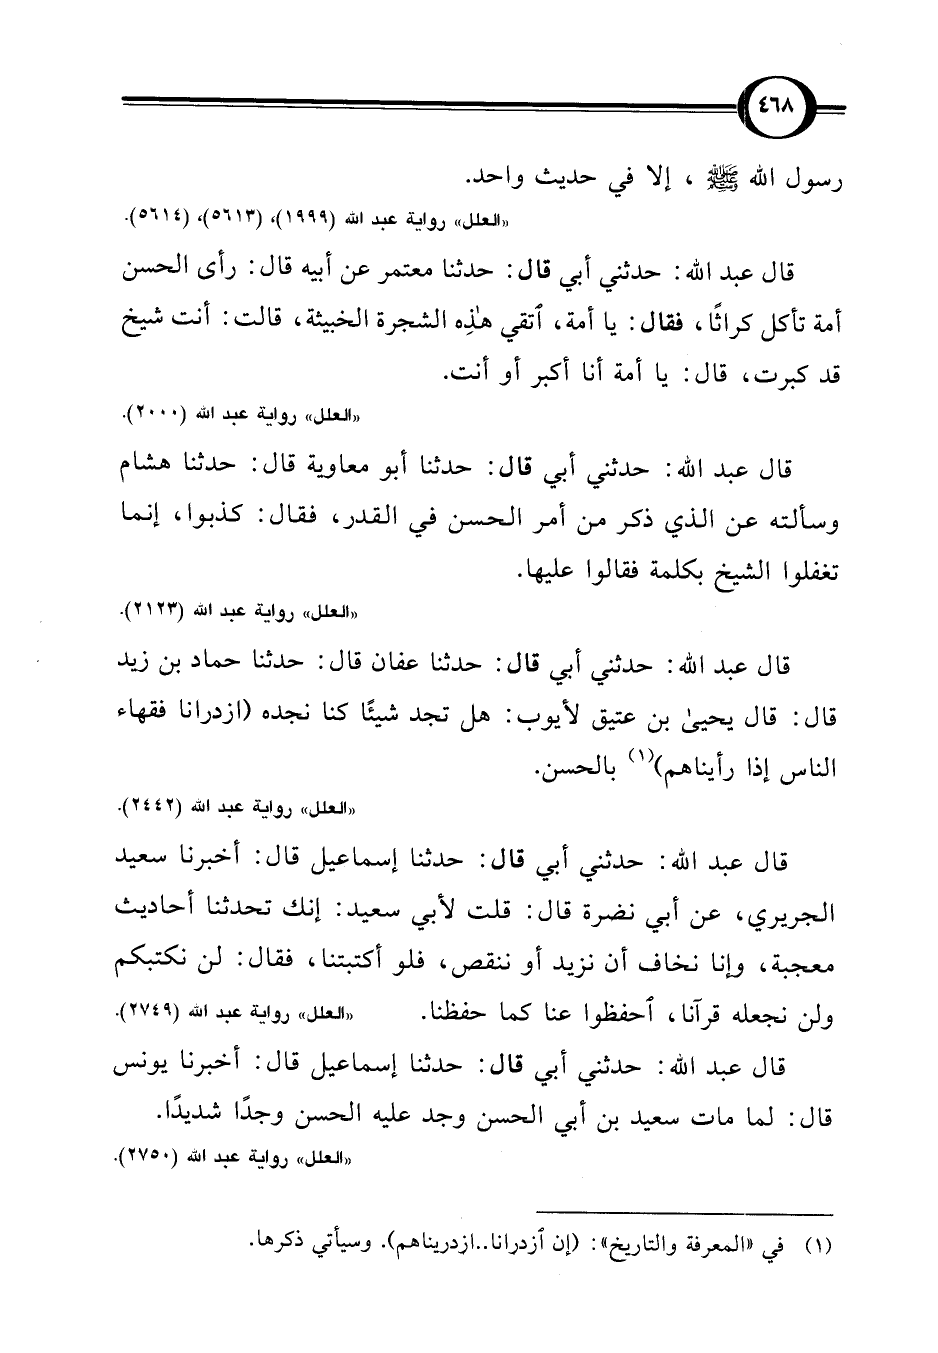 ٤٦٨
رسول الله ﷺ ، إلا في حديث واحد.
«العلل» رواية عبد الله (١٩٩٩)، (٥٦١٣)، (٥٦١٤).
قال عبد الله: حدثني أبي قال: حدثنا معتمر عن أبيه قال: رأى الحسن
أمة تأكل كراثًا، فقال: يا أمة، ٱتقي هذِه الشجرة الخبيثة، قالت: أنت شيخ
قد كبرت، قال: يا أمة أنا أكبر أو أنت.
«العلل» رواية عبد الله (٢٠٠٠).
قال عبد الله: حدثني أبي قال: حدثنا أبو معاوية قال: حدثنا هشام
وسألته عن الذي ذكر من أمر الحسن في القدر، فقال: كذبوا، إنما
تغفلوا الشيخ بكلمة فقالوا عليها.
«العلل» رواية عبد الله (٢١٢٣).
قال عبد الله: حدثني أبي قال: حدثنا عفان قال: حدثنا حماد بن زيد
قال: قال يحيىٰ بن عتيق لأيوب: هل تجد شيئًا كنا نجده (ازدرانا فقهاء
الناس إذا رأيناهم)(١) بالحسن.
«العلل» رواية عبد الله (٢٤٤٢).
قال عبد الله: حدثني أبي قال: حدثنا إسماعيل قال: أخبرنا سعيد
الجريري، عن أبي نضرة قال: قلت لأبي سعيد: إنك تحدثنا أحاديث
معجبة، وإنا نخاف أن نزيد أو ننقص، فلو أكتبتنا، فقال: لن نكتبكم
ولن نجعله قرآنا، ٱحفظوا عنا كما حفظنا. «العلل» رواية عبد الله (٢٧٤٩).
قال عبد الله: حدثني أبي قال: حدثنا إسماعيل قال: أخبرنا يونس
قال: لما مات سعيد بن أبي الحسن وجد عليه الحسن وجدًا شديدًا.
«العلل» رواية عبد الله (٢٧٥٠).
(١) في «المعرفة والتاريخ»: (إن ٱزدرانا..ازدريناهم). وسيأتي ذكرها.